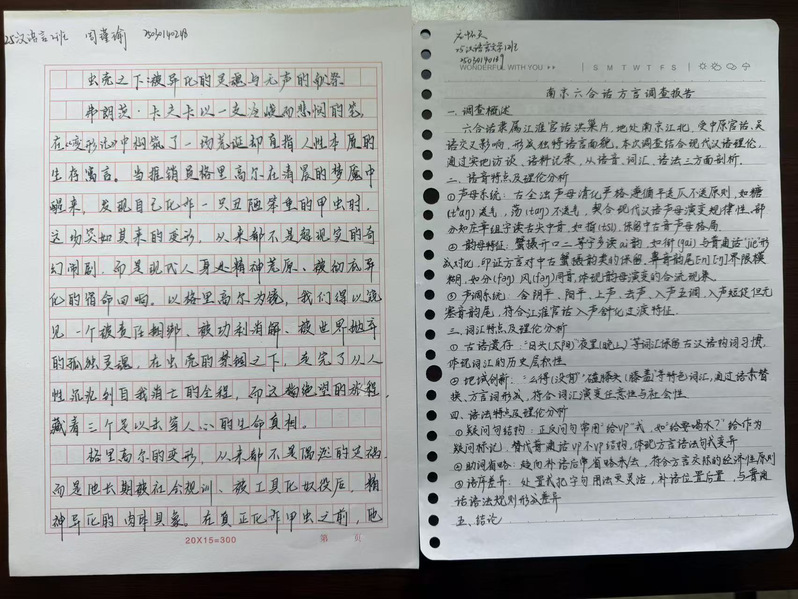 25汉语言2班 闫瑾瑜 25030140248
虫壳之下:被异化的灵魂与无声的献祭
弗朗茨·卡夫卡以一支冷峻而悲悯的笔,
在《变形记》中构筑了一场荒诞却直指人性本质的
生存寓言。当推销员格里高尔在清晨的梦魇中
醒来,发现自己化作一只丑陋笨重的甲虫时,
这场突如其来的变形,从来都不是超现实的奇
幻闹剧,而是现代人身处精神荒原、被彻底异
化的宿命回响。以格里高尔为镜,我们得以窥
见一个被责任捆绑、被功利消解、被世界抛弃
的孤独灵魂,在虫壳的禁锢之下,走完了从人
性沉沦到自我消亡的全程,而这场绝望的旅程,
藏着三个足以击穿人心的生命真相。
格里高尔的变形,从来都不是偶然的灾祸,
而是他长期被社会规训、被工具化奴役后,精
神异化的肉体具象。在真正化作甲虫之前,他
20X15=300 第 页
25汉语言文学12班
25030140187
WONDERFUL WITH YOU
S M T W T F S
南京六合话方言调查报告
一.调查概述
六合话隶属江淮官话洪巢片,地处南京江北,受中原官话、吴
语交叉影响,形成独特语言面貌,本次调查结合现代汉语理论,
通过实地访谈、语料记录,从语音、词汇、语法三方面剖析.
二.语音特点及理论分析
①声母系统:古全浊声母清化严格遵循平送仄不送原则,如糖
(tʰaŋ)送气,荡(taŋ)不送气,契合现代汉语声母演变规律性,部
分知庄章组字读舌尖中音,如指(tsɿ),保留中古音声母格局.
②韵母特征:蟹摄开口二等字多读ai韵,如街(gai)与普通话"jie"形
成对比,印证方言对中古蟹摄韵类的保留,鼻音韵尾[n][ŋ]界限模
糊,如分(fəŋ)风(fəŋ)同音,体现韵母演变的合流现象.
③声调系统:含阴平、阳平、上声、去声、入声五调,入声短促但无
塞音韵尾,符合江淮官话入声舒化过渡特征.
三.词汇特点及理论分析
①古语遗存:"日头(太阳)""夜里(晚上)等词汇保留古汉语构词习惯,
体现词汇的历史层积性.
②地域创新:"么得(没有)""磕膝头(膝盖)等特色词汇,通过语素替
换、方言词形成,符合词汇演变任意性与社会性.
四.语法特点及理论分析
①疑问句结构:正反问句常用"给VP"式,如"给要喝水?"给作为
疑问标记,替代普通话VP不VP结构,体现方言语法句式变异
②助词省略:趋向补语后常省略来/去,符合方言交际的经济性原则
③语序差异:处置式把字句用法更灵活,补语位置后置,与普通
话语法规则形成差异
五.结论